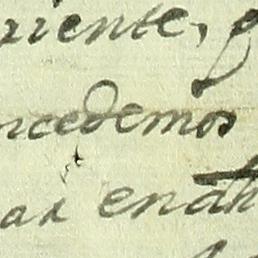 riente, g
ncedemos
ax endh